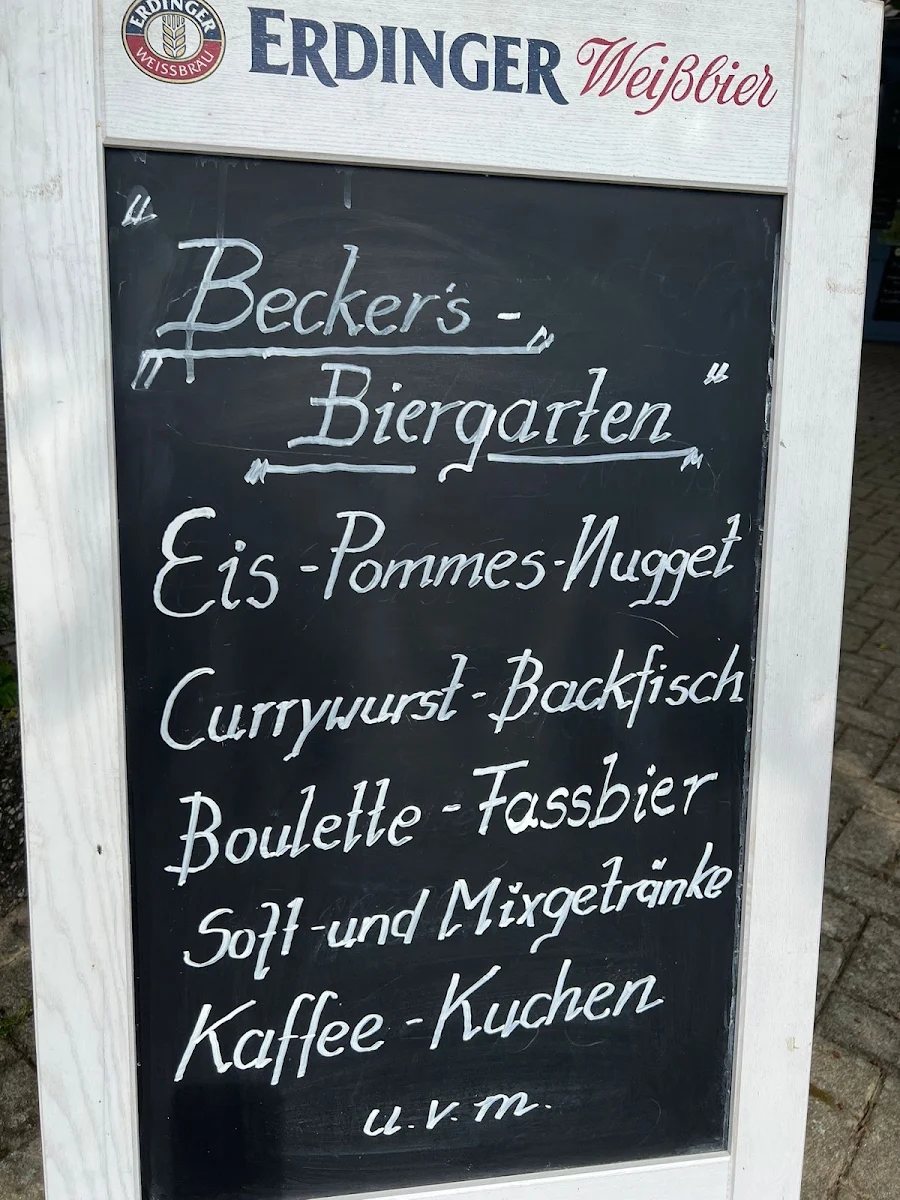 ERDINGER
WEISSBRÄU
ERDINGER Weißbier
"Becker's -
Biergarten"
Eis - Pommes - Nugget
Currywurst - Backfisch
Boulette - Fassbier
Soft - und Mixgetränke
Kaffee - Kuchen
u.v.m.